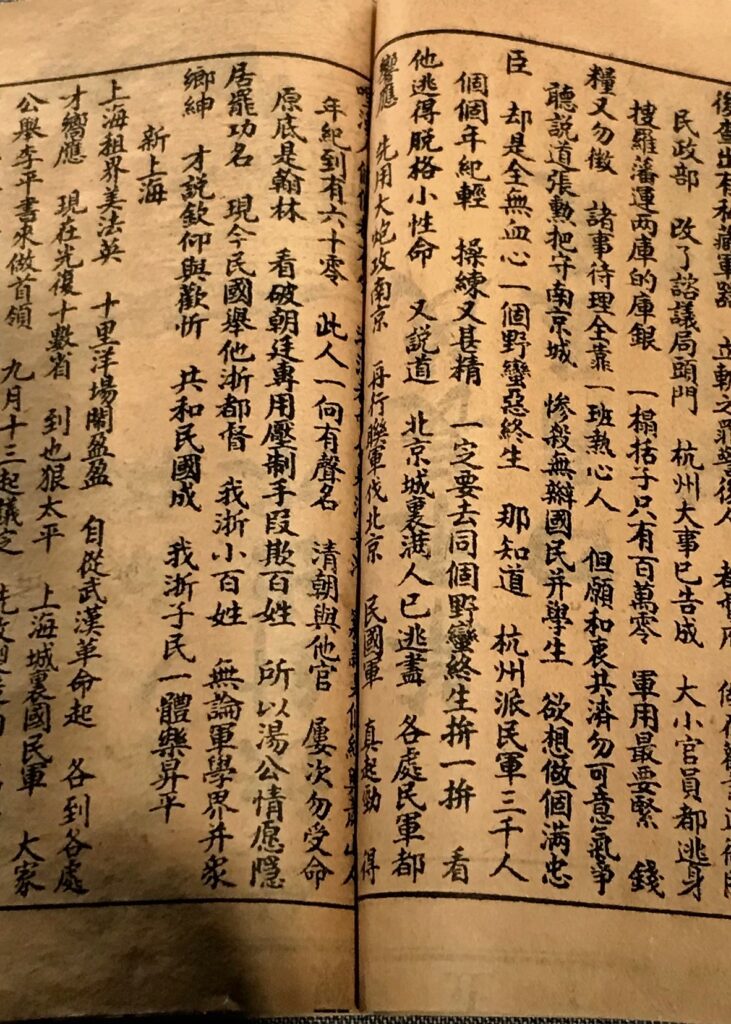 後查出有私藏軍器 立斬之罪
民政部 改了諮議局頭門 杭州大事已告成 大小官員都逃身
搜羅藩運两庫的庫銀 一榻括子只有百萬零 軍用最要緊 錢
糧又勿徵 諸事待理全靠一班熱心人 但願和衷共濟勿可意氣爭
聽說道張勳把守南京城 慘殺無辦國民并學生 欲想做個满忠
臣 却是全無血心一個野蠻惡終生 那知道 杭州派民軍三千人
個個年紀輕 操練又甚精 一定要去同個野蠻終生拚一拚 看
他逃得脱格小性命 又説道 北京城裏满人已逃盡 各處民軍都
響應 先用大炮攻南京 再行聯軍伐北京 民國軍 真起勁 得
年紀到有六十零 此人一向有聲名 清朝與他官 屢次勿受命
原底是翰林 看破朝廷專用壓制手段欺百姓 所以湯公情愿隱
居罷功名 現今民國舉他浙都督 我浙小百姓 無論軍學界并衆
鄉紳 才説欽仰與歡忻 共和民國成 我浙子民一體樂昇平
新上海
上海租界美法英 十里洋場閙盈盈 自從武漢革命起 各到各處
才響應 現在光復十數省 到也狠太平 上海城裏國民軍 大家
公舉李平書來做首領 九月十三起義